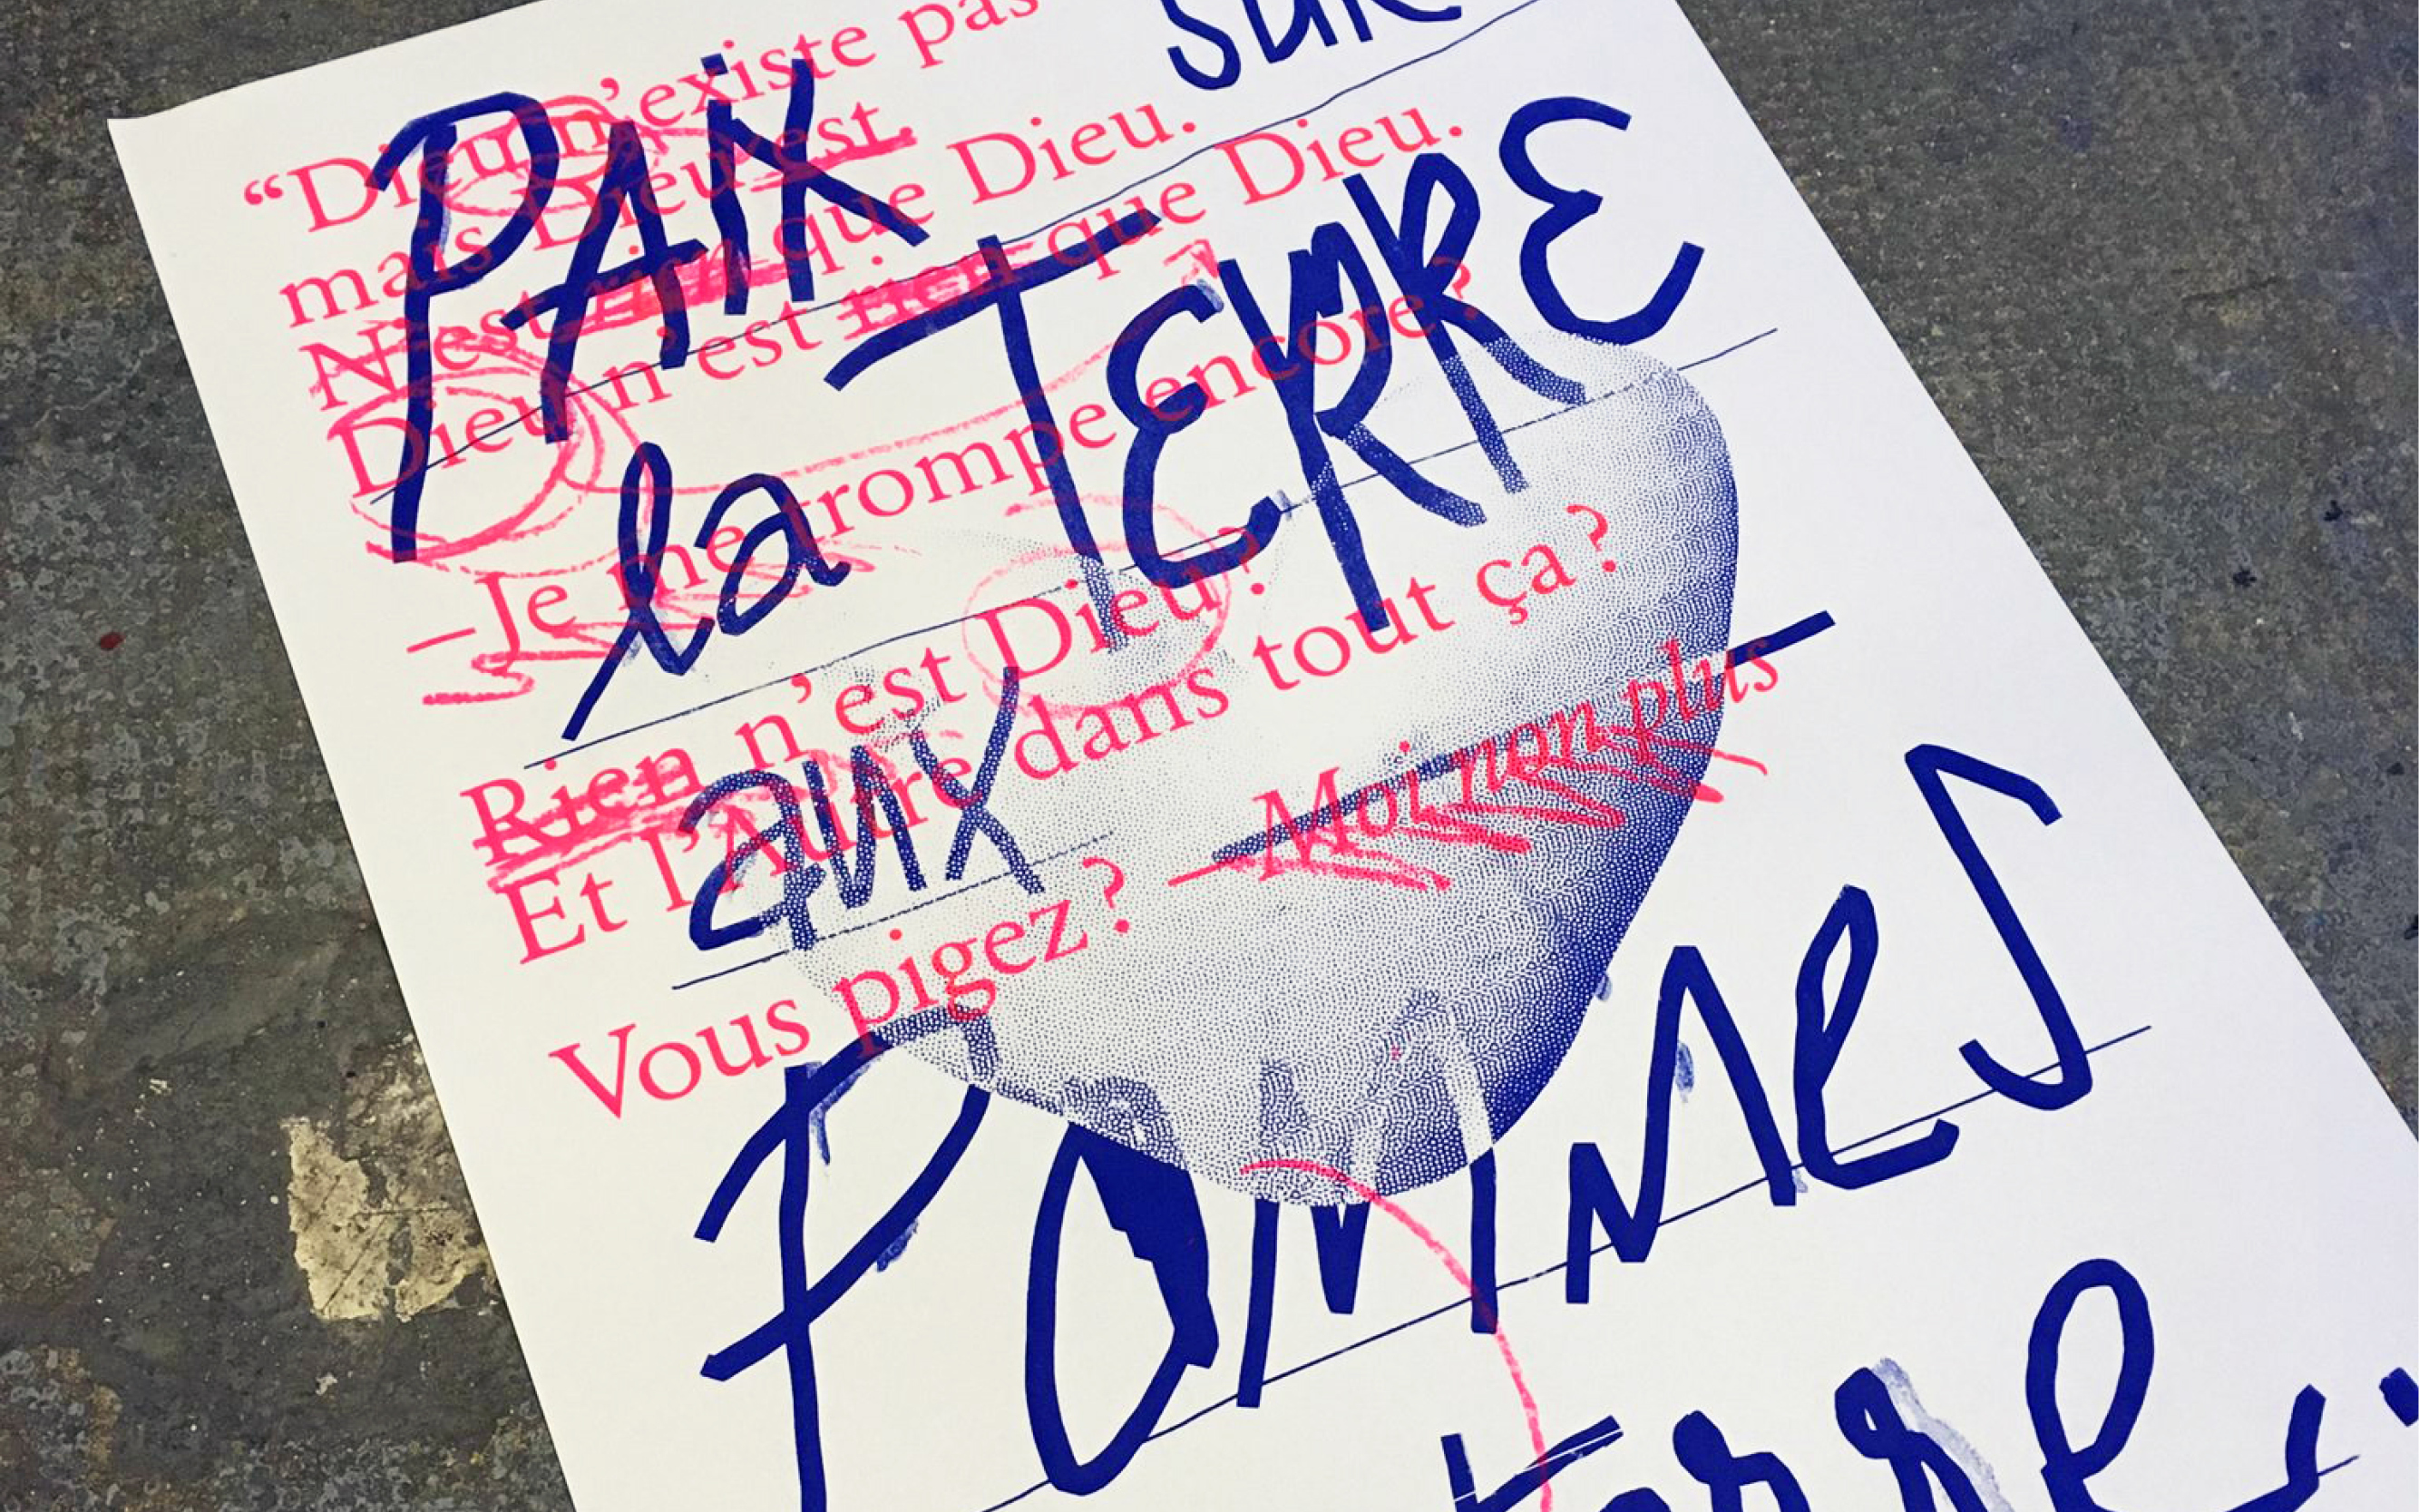 "Dieu n'existe pas
mais Dieu est.
N'est rien que Dieu.
Dieu n'est rien que Dieu.
—Je me trompe encore?
Rien n'est Dieu?
Et l'Autre dans tout ça?
Vous pigez? — Moi non plus
PAIX SUR
la TERRE
aux
POMMES
terre